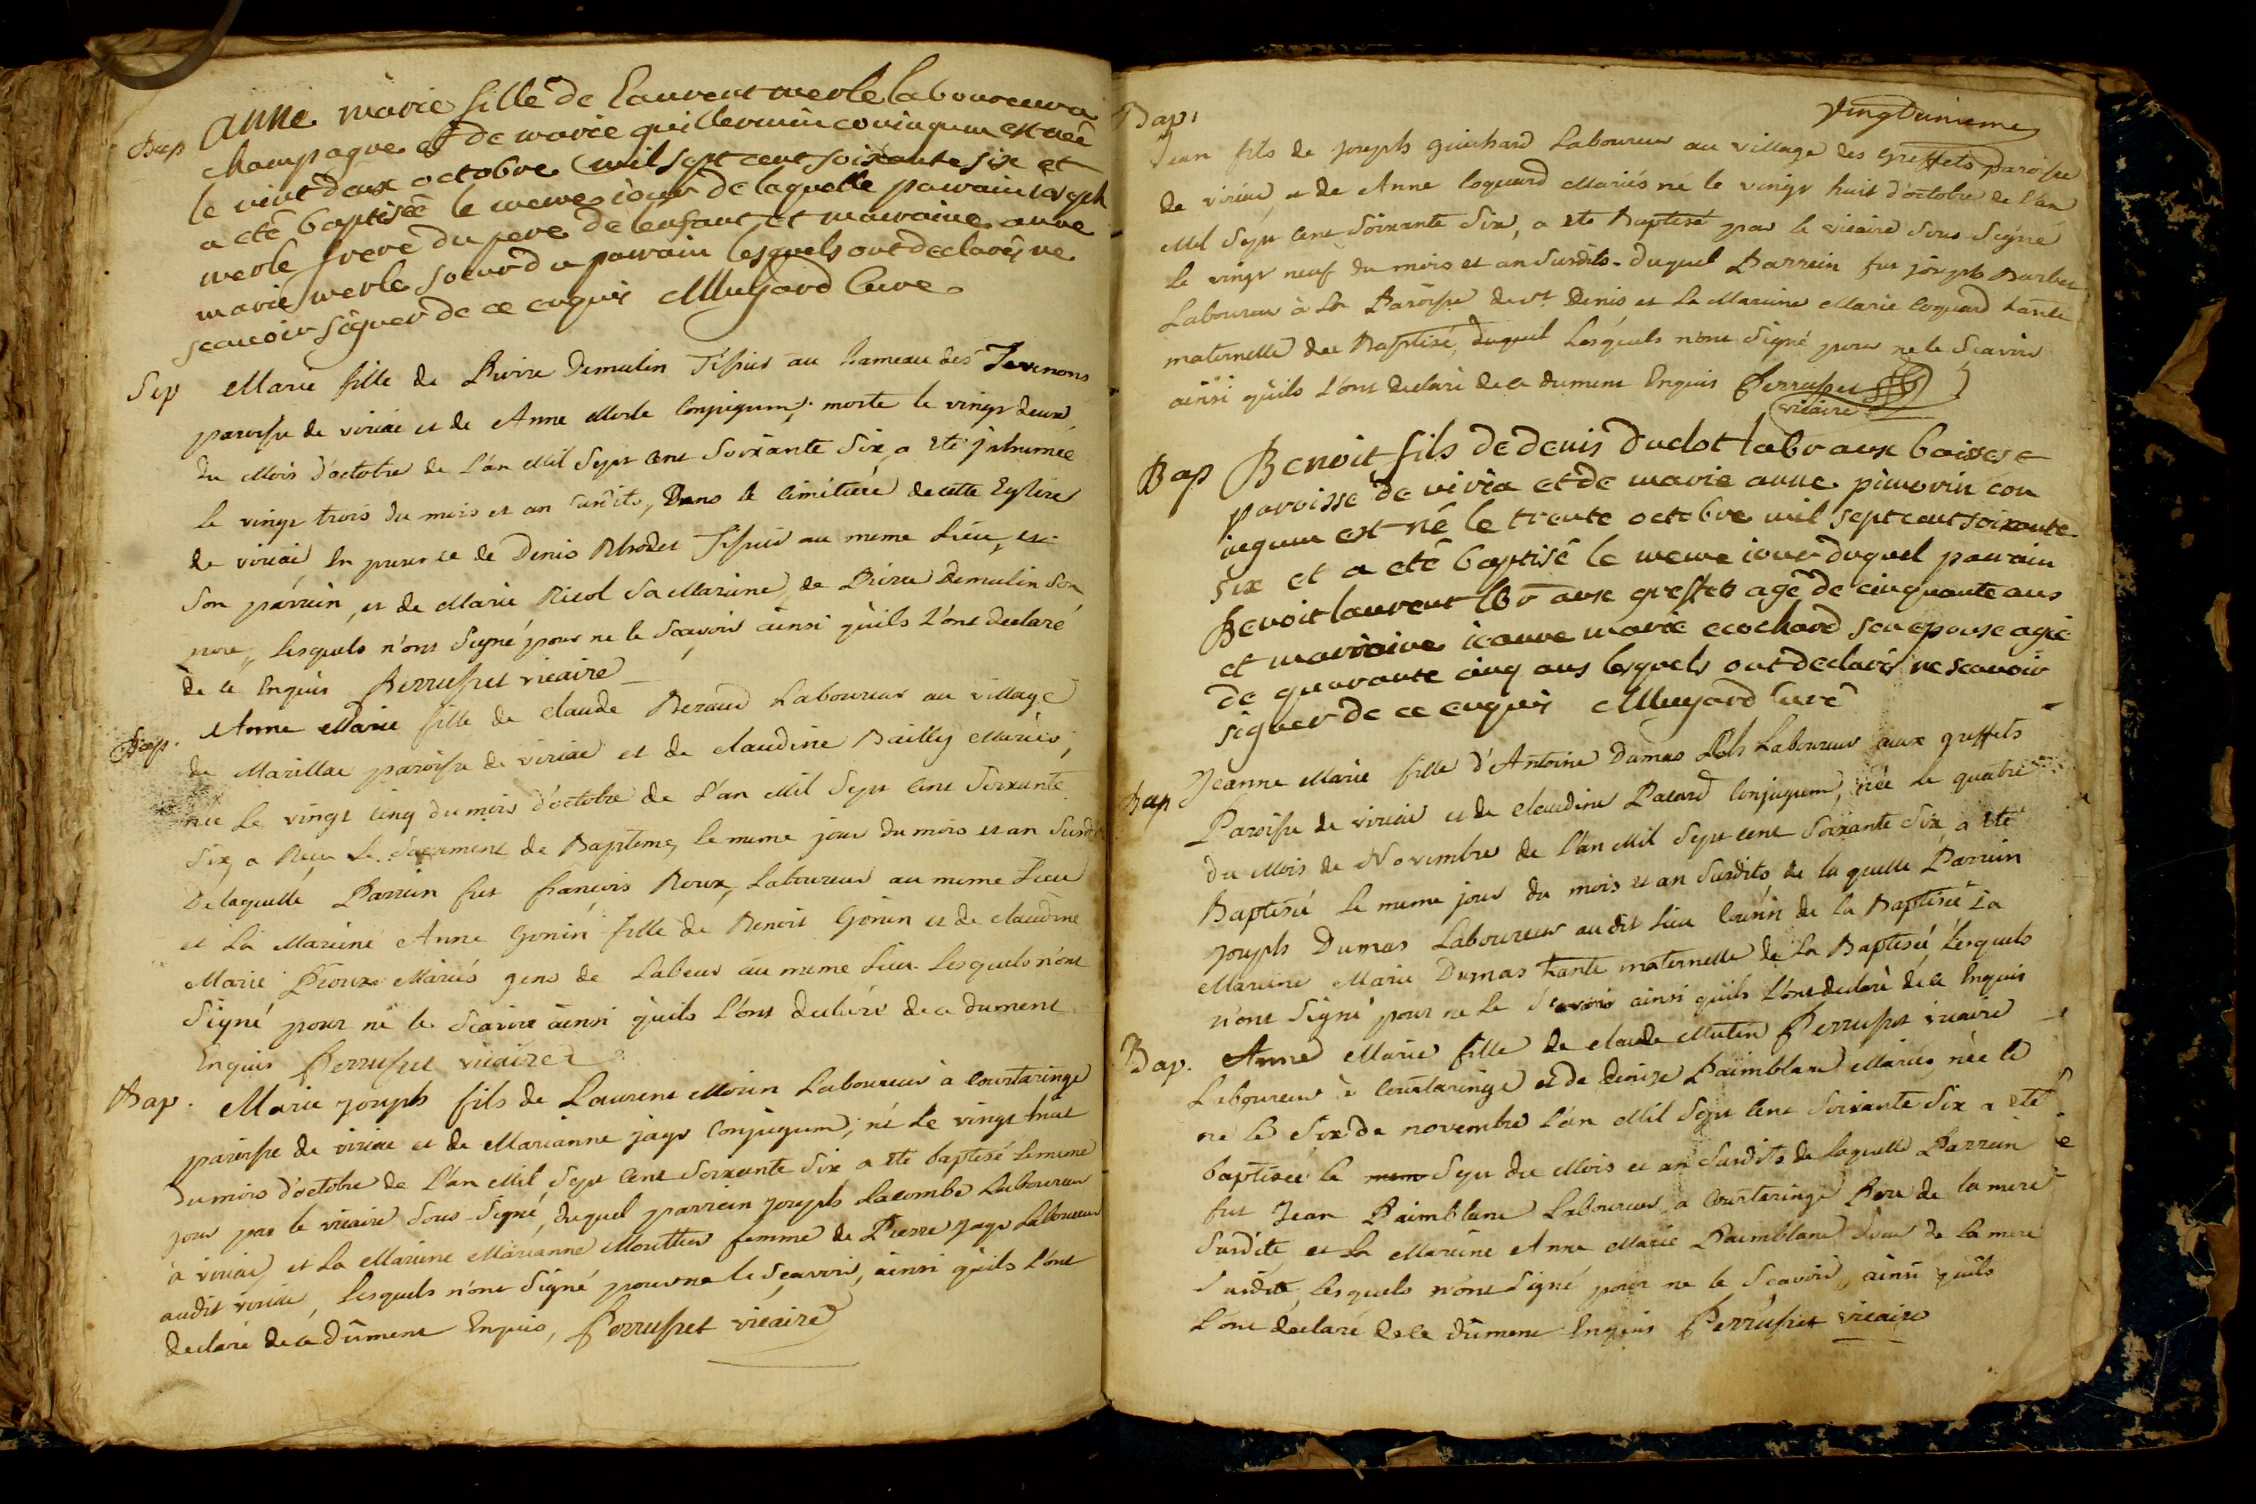 Bap anne marie fille de laurent merle laboureur a
champagne et de marie guillermin conjugum est née
le vint deux octobre mil sept cent soixante six et
a eté baptisée le meme jour de laquelle parrain joseph
merle frere du pere de lenfant et marraine anne
marie merle soeur du parrain lesquels ont declarés ne
scavoir signer de ce enquis Mugard Curé
Sep Marie fille de Pierre Demulin Tissier au hameau des Tevenons
paroisse de viriac et de Anne Merle Conjugum, morte le vingt deux
du Mois d'octobre de l'an Mil Sept Cent Soixante Six a été inhumée
le vingt trois du mois et an susdits, Dans le Cimitiere de cette Eglise
de viriac En presence de Denis Rhodet Tissier au meme Lieu, et
son parrein, et de Marie Nicol sa Mareine, de Pierre Demulin son
pere, Lesquels n'ont Signé pour ne le Scavoir ainsi qu'ils l'ont declaré
de ce Enquis Perrusset vicaire
Bap. Anne Marie fille de claude Beraud Laboureur au village
de Marillac paroisse de viriac et de claudine Bailly Mariés,
née Le vingt Cinq du mois d'octobre de l'an Mil Sept Cent Soixante
Six, a Reçu Le Sacrement de Baptême, le meme jour du mois et an Susdit
De laquelle Parrein fut françois Roux, Laboureur au meme Lieu
et La Mareine Anne Gonin fille de Benoit Gonin et de claudine
Marie Proux Mariés gens de Labeur au meme Lieu Lesquels n'ont
Signé pour ne le Scavoir ainsi qu'ils l'ont declaré de ce dument
Enquis Perrusset vicaire
Bap. Marie joseph fils de Laurent Morin Laboureur à Courtaringe
paroisse de viriac et de Marianne jayr Conjugum, né le vingt huit
du mois d'octobre de l'an Mil Sept Cent Soixante Six a été baptisé le meme
jour par le vicaire Sous-Signé, duquel parrein joseph Lacombe Laboureur
à viriac, et La Mareine Marianne Mouttier femme de Pierre jayr Laboureur
audit viriac, Lesquels n'ont Signé pour ne le Scavoir, ainsi qu'ils l'ont
declaré de ce dûment Enquis, Perrusset vicaire
vingtunieme
Bap. Jean fils de joseph guichard Laboureur au village des Greffets paroisse
de viriac, et de Anne Coguard Mariés né le vingt huit d'octobre de l'an
Mil Sept Cent Soixante Six, a été Baptisé par le vicaire Sous Signé
Le vingt neuf du mois et an Susdits. Duquel Parrein fut joseph Burbet
Laboureur à la Paroisse de St. Denis, et La Mareine Marie Coguard tante
maternelle du Baptisé, duquel Lesquels n'ont Signé pour ne le Scavoir
ainsi qu'ils l'ont declaré de ce dument Enquis Perrusset
vicaire
Bap Benoit fils de denis duclot labr aux baisses
paroisse de viria et de marie anne pimorin con
iugum est né le trente octobre mil sept cent soixante
six et a eté baptisé le meme iour duquel parrain
Benoit laurent lbr aux greffets agé de cinquante ans
et marraine ieanne marie ecochard son epouse agée
de quarante cinq ans lesquels ont declarés ne scavoir
signer de ce enquis Mugard curé
Bap Jeanne Marie fille d'Antoine Dumas Laboureur aux greffets
Paroisse de viriac et de claudine Pacard Conjugum, née Le quatre
du Mois de Novembre de l'an Mil Sept cent Soixante Six, a été
Baptisée Le meme jour du mois et an Susdits de laquelle Parrein
joseph Dumas Laboureur audit Lieu Cousin de la Baptisée La
Mareine Marie Dumas tante maternelle de La Baptisée Lesquels
n'ont Signé pour ne Le Scavoir ainsi qu'ils l'ont declaré de ce Enquis
Perrusset vicaire
Bap. Anne Marie fille de claude Mutin
Laboureur à Courtaringe et de denize Paimblanc Mariés, née le
ne le Six de novembre l'an Mil Sept Cent Soixante Six a été
baptisée le Sept du Mois et an Susdits de laquelle Parrein
fut Jean Paimblanc Laboureur, a Courtaringe Pere de la mere
Susdite et La Mareine Anne Marie Paimblanc Soeur de La mere
Susdite, Lesquels n'ont Signé pour ne le Scavoir, ainsi qu'ils
l'ont déclaré de ce dûment Enquis Perrusset vicaire